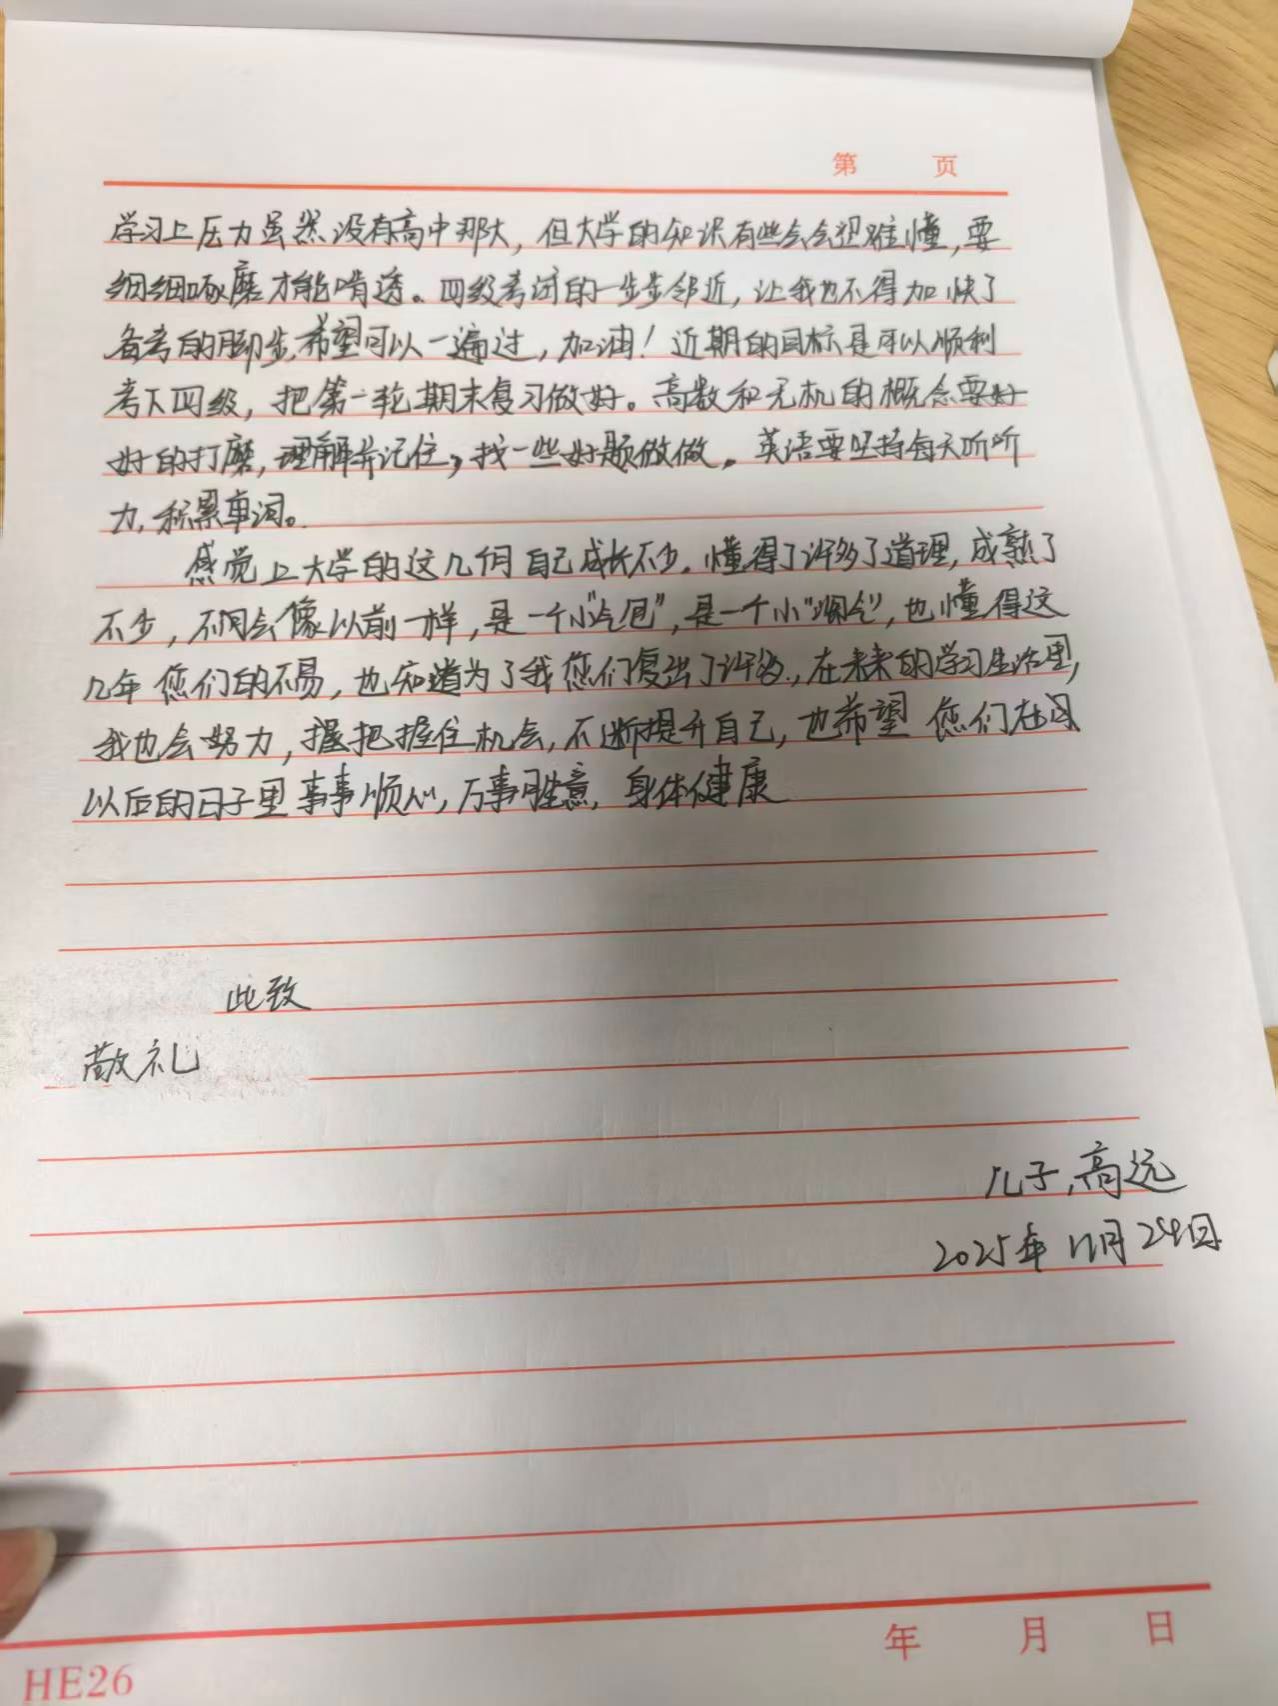 第 页
学习上压力虽然没有高中那大，但大学的知识有些会会很难懂，要
细细啄磨才能啃透。四级考试的一步步邻近，让我也不得加快了
备考的脚步，希望可以一遍过，加油！近期的目标是可以顺利
考下四级，把第一轮期末复习做好。高数和无机的概念要好
好的打磨，理解并记住，找一些好题做做。英语要坚持每天听听
力，积累单词。
感觉上大学的这几个月自己成长不少，懂得了许多了道理，成熟了
不少，不会像以前一样，是一个小"气包"，是一个小"  "，也懂得这
几年您们的不易，也知道为了我您们复出了许多，在未来的学习生活里，
我也会努力，握把握住机会，不断提升自己，也希望 您们在
以后的日子里事事顺心，万事胜意，身体健康
此致
敬礼
儿子，高远
2025年11月29日
年 月 日
HE26